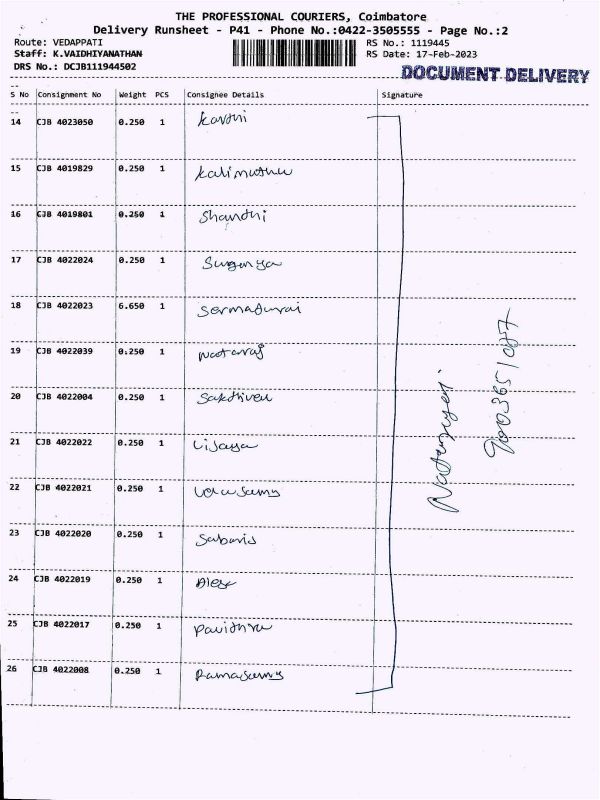 THE PROFESSIONAL COURIERS, Coimbatore
Delivery Runsheet - P41 - Phone No.:0422-3505555 - Page No.:2
Route: VEDAPPATI RS No.: 1119445
Staff: K.VAIDHIYANATHAN RS Date: 17-Feb-2023
DRS No.: DCJB111944502
DOCUMENT DELIVERY
S No Consignment No Weight PCS Consignee Details Signature
14 CJB 4023050 0.250 1
15 CJB 4019829 0.250 1 Kalimuthu
16 CJB 4019801 0.250 1 Shanthi
17 CJB 4022024 0.250 1 Suganya
18 CJB 4022023 6.650 1 Sermadurai
19 CJB 4022039 0.250 1 Nataraj
20 CJB 4022004 0.250 1 Sakthivel
21 CJB 4022022 0.250 1 Vijaya
22 CJB 4022021 0.250 1
23 CJB 4022020 0.250 1 Sabaris
24 CJB 4022019 0.250 1 Alex
25 CJB 4022017 0.250 1 Pavithra
26 CJB 4022008 0.250 1 Ramasamy